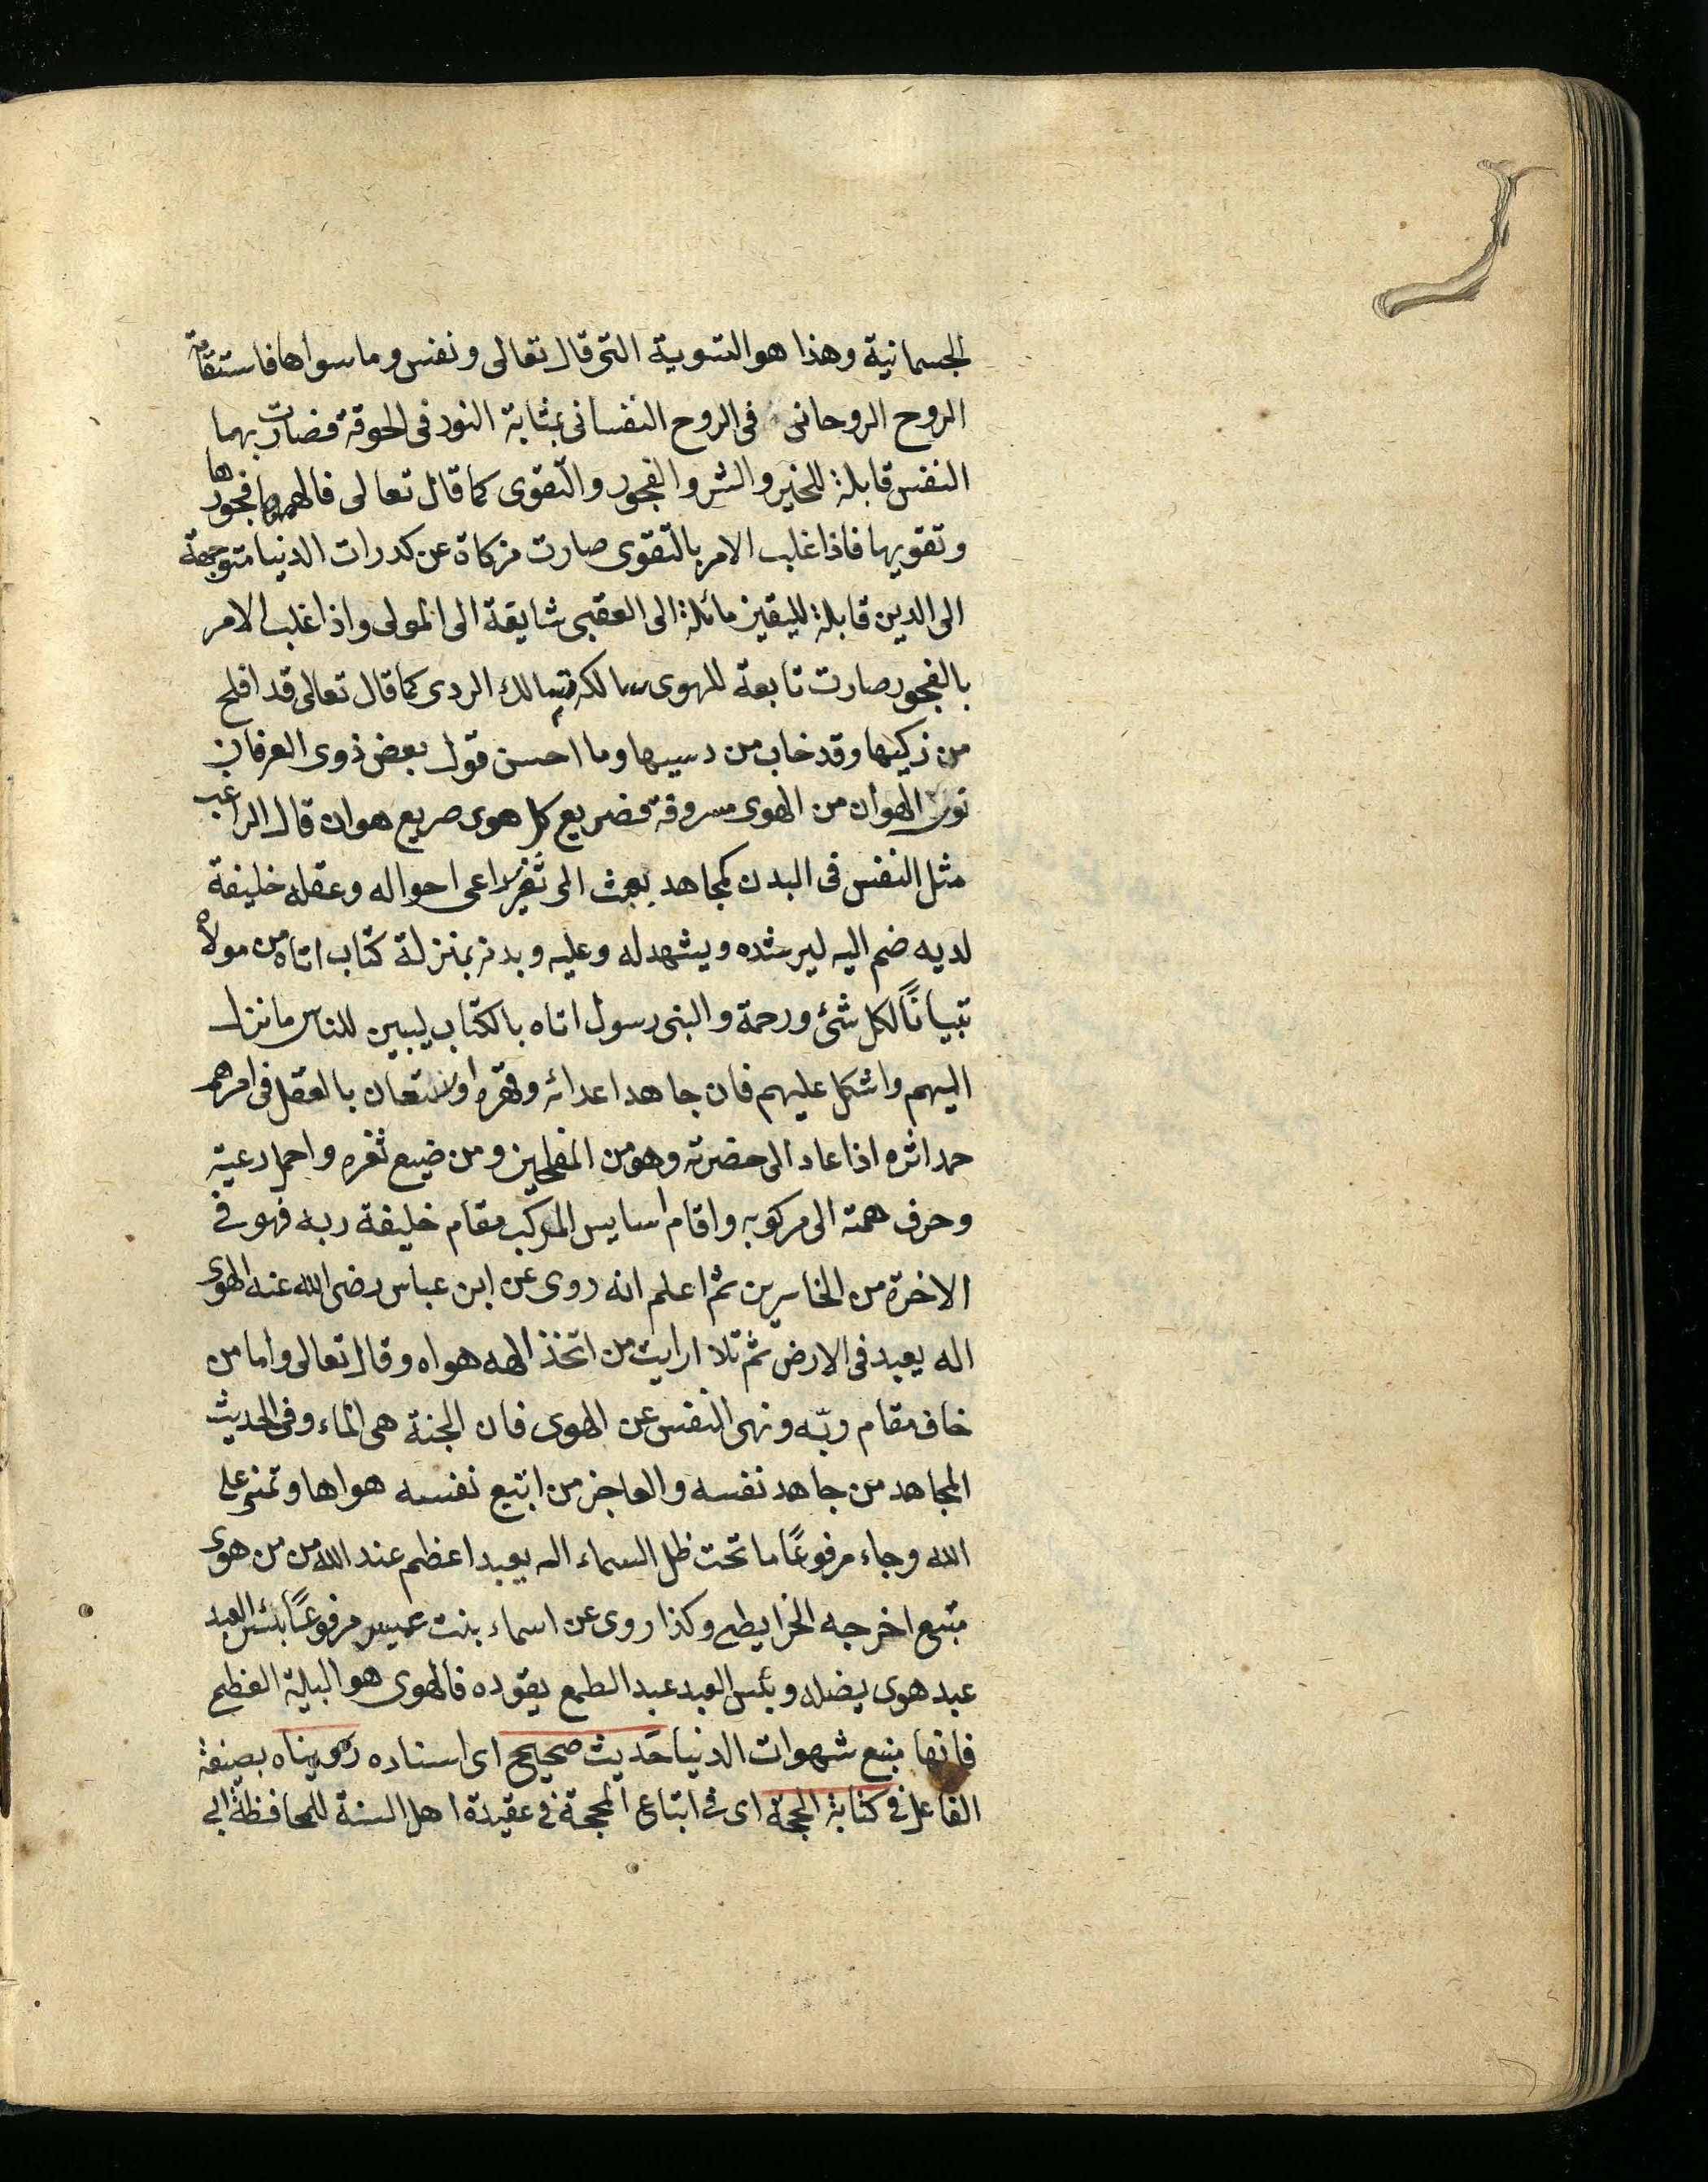 الجسمانية وهذا هو التسوية التى قال تعالى ونفس وما سواها فاستقامة
الروح الروحانى فى الروح النفسانى بمثابة النور فى الحدقة فصارت بهما
النفس قابلة للخير والشر والفجور والتقوى كما قال تعالى فالهمها فجورها
وتقويها فاذا غلب الامر بالتقوى صارت مزكاة عن كدرات الدنيا متوجهة
الى الدين قابلة لليقين مائلة الى العقبى شايقة الى المولى واذا غلب الامر
بالفجور صارت تابعة للهوى سالكة مسالك الردى كما قال تعالى قد افلح
من زكيها وقد خاب من دسيها وما احسن قول بعض ذوى العرفان
نون الهوان من الهوى مسروقة فصريع كل هوى صريع هوان قال الراغب
مثل النفس فى البدن كمجاهد بعث الى ثغر يراعى احواله وعقله خليفة
لديه ضم اليه ليرشده ويشهد له وعليه وبدنه بمنزلة كتاب اتاه من مولاه
تبيانًا لكل شئ ورحمة والنبى رسول اتاه بالكتاب ليبين للناس ما نزل
اليهم واشكل عليهم فان جاهد اعدائه وقهرهم واستعان بالعقل فى امرهم
حمد اثره اذا عاد الى حضرته وهو من المفلحين ومن ضيع ثغره واهمل رعيته
وحرف همته الى مركوبه واقام سايس المركب مقام خليفة ربه فهو فى
الاخرة من الخاسرين ثم اعلم انه روى عن ابن عباس رضى الله عنه الهوى
اله يعبد فى الارض ثم تلا ارايت من اتخذ الهه هواه وقال تعالى واما من
خاف مقام ربّه ونهى النفس عن الهوى فان الجنة هى الماء وفى الحديث
المجاهد من جاهد نفسه والعاجز من اتبع نفسه هواها وتمنى على
الله وجاء مرفوعًا ما تحت ظل السماء اله يعبد اعظم عند الله من من هوى
متبع اخرجه الخرايطى وكذا روى عن اسماء بنت عميس مرفوعًا بئس العبد
عبد هوى يضله وبئس العبد عبد الطمع يقوده فالهوى هو البلية العظيم
فانها منبع شهوات الدنيا حديث صحيح اى اسناده رويناه بصيغة
الفاعل فى كتابة الحجة اى فى اتباع المحجة فى عقيدة اهل السنة للحافظة ابى